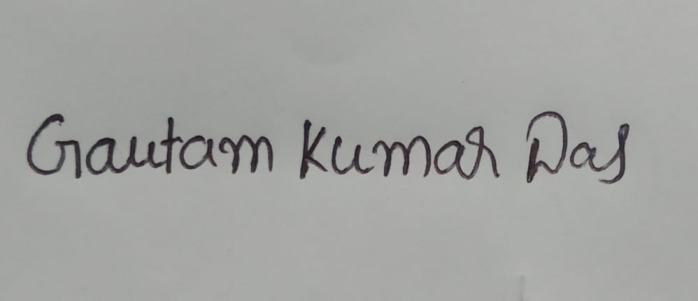 Gautam Kumar Das